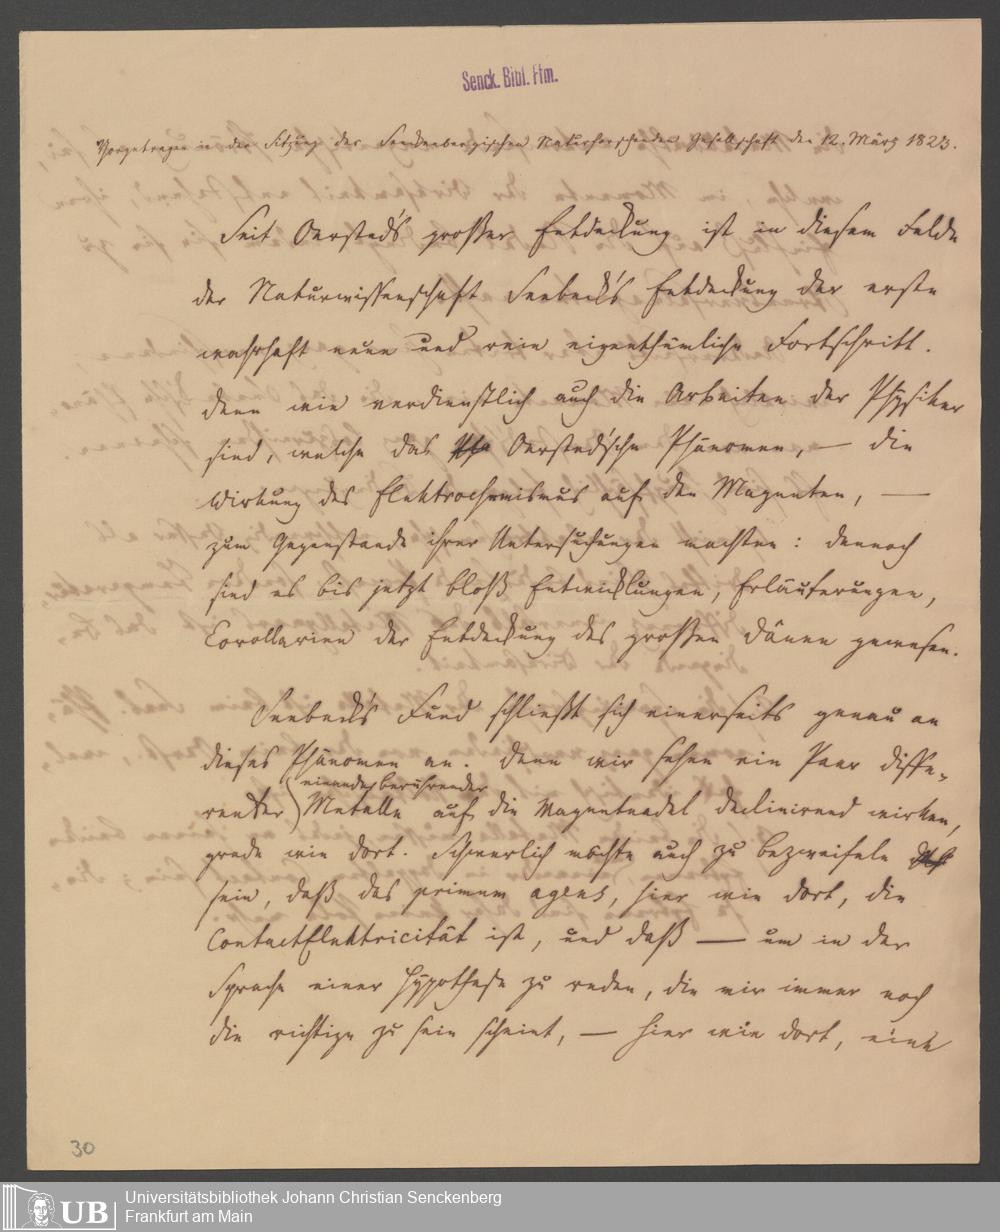 Senck. Bibl. Ffm.
Vorgetragen in der Sitzung der Senkenbergischen Naturforschenden Gesellschaft den 12. März 1823.
Seit Oersted's großer Entdeckung ist in diesem Felde
der Naturwissenschaft Seebeck's Entdeckung der erste
wahrhaft neue und rein eigenthümliche Fortschritt.
denn wie verdienstlich auch die Arbeiten der Physiker
sind, welche das Oersted'sche Phänomen, — die
Wirkung des Elektrochemismus auf den Magneten, —
zum Gegenstande ihrer Untersuchungen machten: dennoch
sind es bis jetzt bloß Entwicklungen, Erläuterungen,
Corollarien der Entdeckung des großen Dänen gewesen.
Seebeck's Fund schließt sich einerseits genau an
dieses Phänomen an. denn wir sehen ein Paar diffe-
einander berührender
renter Metalle auf die Magnetnadel declinirend wirken,
grade wie dort. Schwerlich möchte auch zu bezweifeln
sein, daß das primum agens, hier wie dort, die
ContactElektricität ist, und daß — um in der
Sprache einer Hypothese zu reden, die mir immer noch
die richtige zu sein scheint, — hier wie dort, eine
30
UB
Universitätsbibliothek Johann Christian Senckenberg
Frankfurt am Main